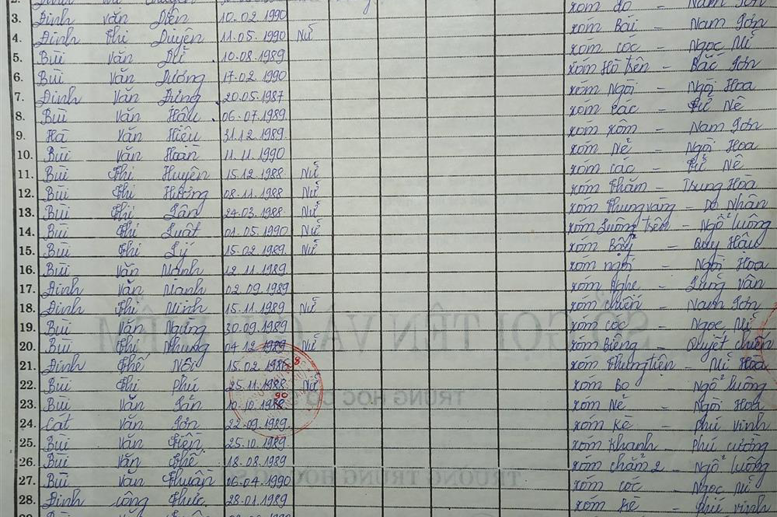 3. Đinh Văn Diễn 10.02.1990 xóm Bái - Nam Sơn
4. Đinh Thị Duyên 11.05.1990 Nữ xóm cóc - Ngọc Mĩ
5. Bùi Văn 10.08.1989 xóm Hồ trên - Bắc Sơn
6. Bùi Văn Dương 17.02.1990 xóm Ngòi - Ngòi Hoa
7. Đinh Văn 20.05.1987 xóm Các - Tử Nê
8. Bùi Văn Hậu 06.07.1989 xóm xôm - Nam Sơn
9. Hà Văn Hiếu 31.12.1989 xóm Nẻ - Ngòi Hoa
10. Bùi Văn Hoàn 11.11.1990 xóm các - Tử Nê
11. Bùi Thị Huyền 15.12.1988 Nữ xóm Thăm - Trung Hòa
12. Bùi Thị Hương 08.11.1988 Nữ xóm Thung vang - Do Nhân
13. Bùi Thị Lân 24.03.1988 Nữ xóm Luông trên - Ngổ luông
14. Bùi Thị Luật 01.05.1990 Nữ xóm - Quy Hậu
15. Bùi Thị Lý 15.02.1989 Nữ xóm ngòi - Ngòi Hoa
16. Bùi Văn Mạnh 12.11.1989 xóm Nghe - Lũng Vân
17. Đinh Văn Mạnh 02.09.1989 xóm chiến - Nam Sơn
18. Đinh Thị Ninh 15.11.1989 Nữ xóm cóc - Ngọc Mĩ
19. Bùi Văn Ngưng 30.09.1989 xóm Biêng - Quyết chiến
20. Bùi Thị Nhung 04.12.1989 Nữ xóm Thung tiện - Mĩ Hòa
21. Đinh Thế 15.02.198 xóm Bo - Ngổ luông
22. Bùi Thị Phú 25.11.1988 Nữ xóm Nẻ - Ngòi Hoa
23. Bùi Văn 10.10. xóm Kè - Phú vinh
24. Cát Văn Sơn 22.09.1989 xóm Khanh - Phú cường
25. Bùi Văn Tiện 25.10.1989 xóm chắn 2 - Ngổ luông
26. Bùi Văn Thế 18.08.1989 xóm cóc - Ngọc Mĩ
27. Bùi Văn Thuần 16.04.1990 xóm Kè - Phú vinh
28. Đinh Công Thức 28.01.1989
SỔ GỌI TÊN VÀ GHI ĐIỂM
TRUNG HỌC CƠ SỞ
TRƯỜNG TRUNG HỌC